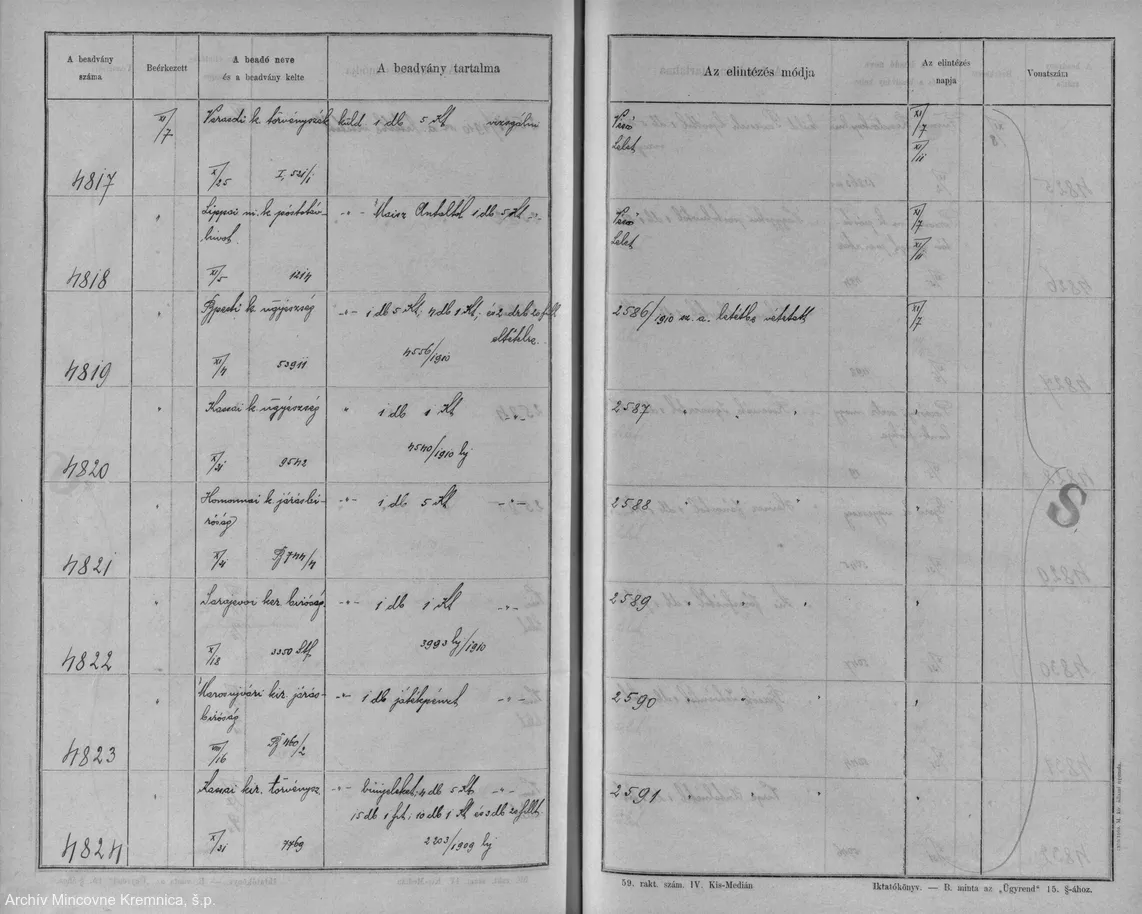 A beadvány száma
Beérkezett
A beadó neve
és a beadvány kelte
A beadvány tartalma
Az elintézés módja
Az elintézés napja
Vonatszám
XI/7
Varasdi k. törvényszék
küld 1 db 5 Kt vizsgálni
Lelet
XI/7
XI/11
4817
X/25
I, 521/1
Lippai m. k. póstatáv-
Maisz Antaltól 1 db 5 Kt
Lelet
XI/7
XI/11
4818
XI/5
1214
Bpesti k. ügyészség
1 db 5 Kt; 4 db 1 Kt; és 2 drb 20 fill
eltételre
2586/1910 sz. a. letétbe vétetett
XI/7
4819
XI/4
53911
4556/1910
Kassai k. ügyészség
" 1 db 1 Kt
2587
4820
X/31
9542
4540/1910
Homonnai k. járásbi-
róság
1 db 5 Kt
2588
4821
744/4
Sarajevoi ker. bíróság
1 db 1 Kt
2589
4822
X/18
3350
3993 /1910
Marosujvári kir. járás-
bíróság
1 db játékpénzt
2590
4823
VIII/16
460/2
Kassai kir. törvénysz.
bünjeleket; 4 db 5 Kt
15 db 1 frt; 10 db 1 Kt és 3 db 20 fillt
2591
4824
X/31
7769
2203/1909
S
59. rakt. szám. IV. Kis-Medián
Iktatókönyv. — B. minta az „Ügyrend" 15. §-ához.
Archív Mincovne Kremnica, š.p.